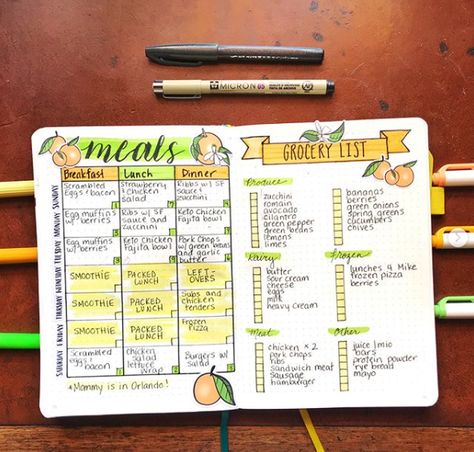 MICRON 05
meals
Breakfast
Lunch
Dinner
SUNDAY
Scrambled
eggs & bacon
Strawberry
& chicken
salad
Ribs w/ SF
sauce and
zucchini
MONDAY
Egg muffins
w/ berries
Ribs w/ SF
sauce and
zucchini
Keto Chicken
Fajita bowl
TUESDAY
Egg muffins
w/ berries
Keto Chicken
Fajita bowl
Pork Chops
w/ green beans
and garlic
butter
WEDNESDAY
SMOOTHIE
PACKED
LUNCH
LEFT-
OVERS
THURSDAY
SMOOTHIE
PACKED
LUNCH
Subs and
chicken
tenders
FRIDAY
SMOOTHIE
PACKED
LUNCH
Frozen
Pizza
SATURDAY
Scrambled
eggs &
bacon
Chicken
salad
lettuce
wrap
Burgers w/
salad
*Mommy is in Orlando!
GROCERY LIST
Produce
zucchini
romain
avocado
cilantro
green pepper
green beans
lemons
limes
bananas
berries
green onions
spring greens
cucumbers
chives
Dairy
butter
sour cream
cheese
eggs
milk
heavy cream
Frozen
lunches 4 Mike
frozen pizza
berries
Meat
chicken x 2
pork chops
ribs
sandwich meat
sausage
hamburger
Other
juice/mio
bars
protein powder
rye bread
mayo